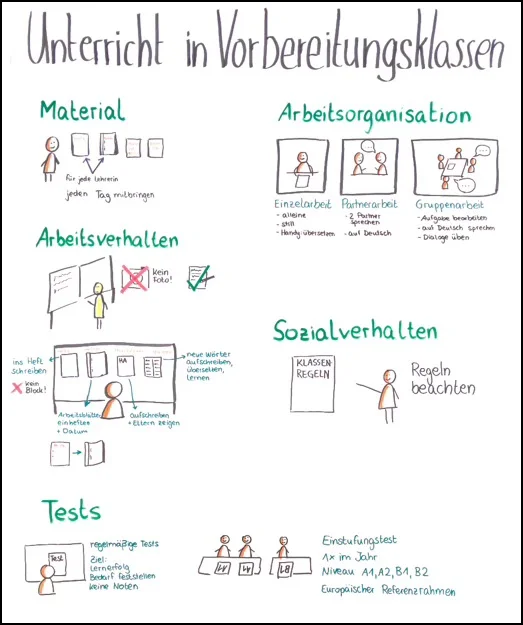 Unterricht in Vorbereitungsklassen
Material
für jede Lehrerin
jeden Tag mitbringen
Arbeitsorganisation
Einzelarbeit
- alleine
- still
- Handy: übersetzen
Partnerarbeit
- 2 Partner
sprechen
- auf Deutsch
Gruppenarbeit
- Aufgabe bearbeiten
- auf Deutsch sprechen
- Dialoge üben
Arbeitsverhalten
kein
Foto!
ins Heft
schreiben
kein
Block!
HA
neue Wörter
aufschreiben,
übersetzen,
lernen
Arbeitsblätter
einheften
+ Datum
aufschreiben
+ Eltern zeigen
Sozialverhalten
KLASSEN-
REGELN
Regeln
beachten
Tests
Test
regelmäßige Tests
Ziel:
Lernerfolg
Bedarf feststellen
keine Noten
A1
A1
B1
Einstufungstest
1x im Jahr
Niveau A1, A2, B1, B2
Europäischer Referenzrahmen